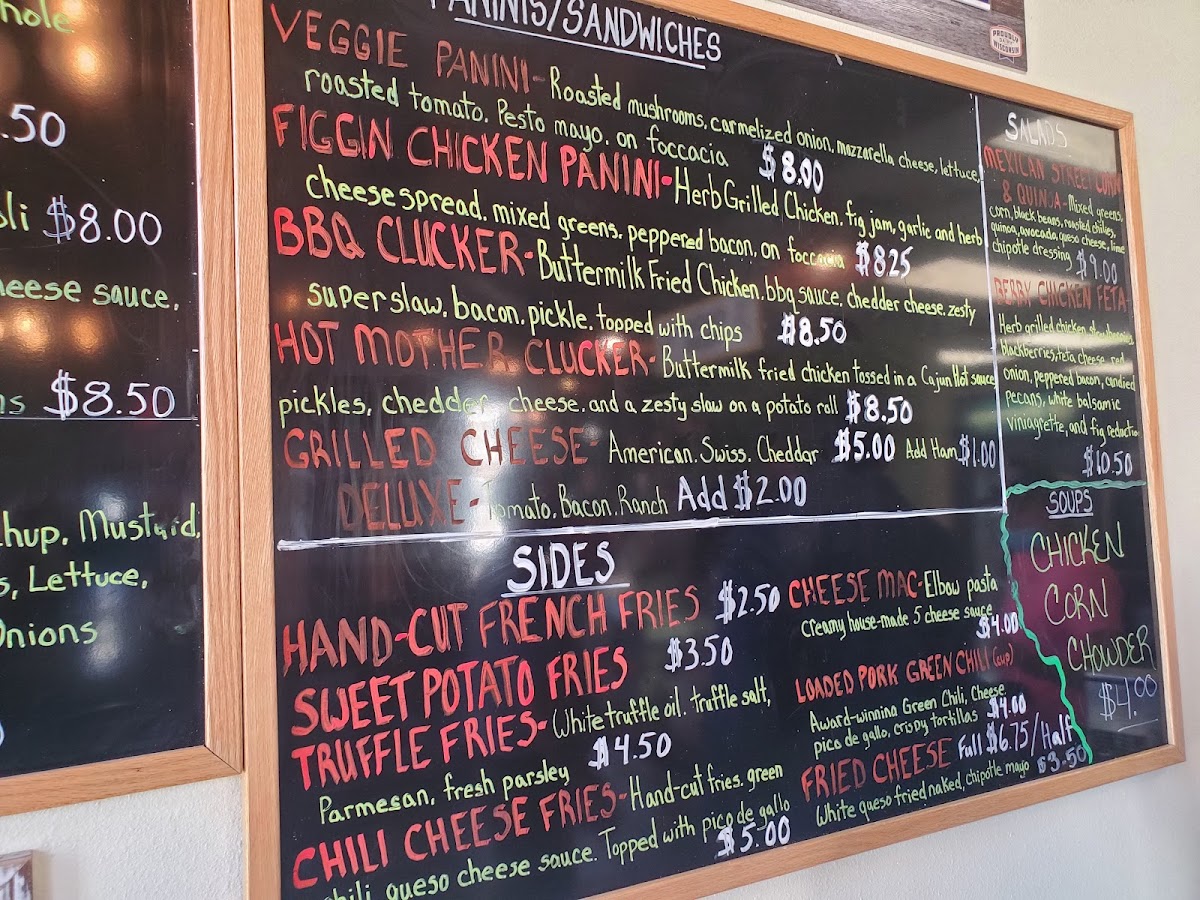 hole
.50
li $8.00
eese sauce.
ns $8.50
hup, Mustard,
s, Lettuce,
Onions
PANINIS/SANDWICHES
VEGGIE PANINI- Roasted mushrooms, carmelized onion, mazzarella cheese, lettuce,
roasted tomato. Pesto mayo. on foccacia $8.00
FIGGIN CHICKEN PANINI- Herb Grilled Chicken, fig jam, garlic and herb
cheese spread. mixed greens. peppered bacon, on foccacia $8.25
BBQ CLUCKER- Buttermilk Fried Chicken. bbq sauce, chedder cheese. zesty
super slaw. bacon. pickle. topped with chips $8.50
HOT MOTHER CLUCKER- Buttermilk fried chicken tossed in a Cajun Hot sauce
pickles, chedder cheese. and a zesty slaw on a potato roll $8.50
GRILLED CHEESE- American. Swiss. Cheddar $5.00 Add Ham $1.00
DELUXE- Tomato. Bacon. Ranch Add $2.00
SIDES
HAND-CUT FRENCH FRIES $2.50
SWEET POTATO FRIES $3.50
TRUFFLE FRIES- White truffle oil. truffle salt,
Parmesan, fresh parsley $4.50
CHILI CHEESE FRIES- Hand-cut fries. green
chili, queso cheese sauce. Topped with pico de gallo
$5.00
CHEESE MAC- Elbow pasta
creamy house-made 5 cheese sauce
$4.00
LOADED PORK GREEN CHILI (cup)
Award-winning Green Chili, Cheese
pico de gallo, crispy tortillas $4.00
FRIED CHEESE Full $6.75/Half
White queso fried naked, chipotle mayo $3.50
SALADS
MEXICAN STREET CORN
& QUINOA- Mixed greens,
corn, black beans, roasted chilies,
quinoa, avocado, queso cheese, lime
chipotle dressing $9.00
BERRY CHICKEN FETA
Herb grilled chicken, strawberries,
blackberries, feta cheese, red
onion, peppered bacon, candied
pecans, white balsamic
viniagrette, and fig reduction
$10.50
SOUPS
CHICKEN
CORN
CHOWDER
$4.00
PROUDLY
WISCONSIN